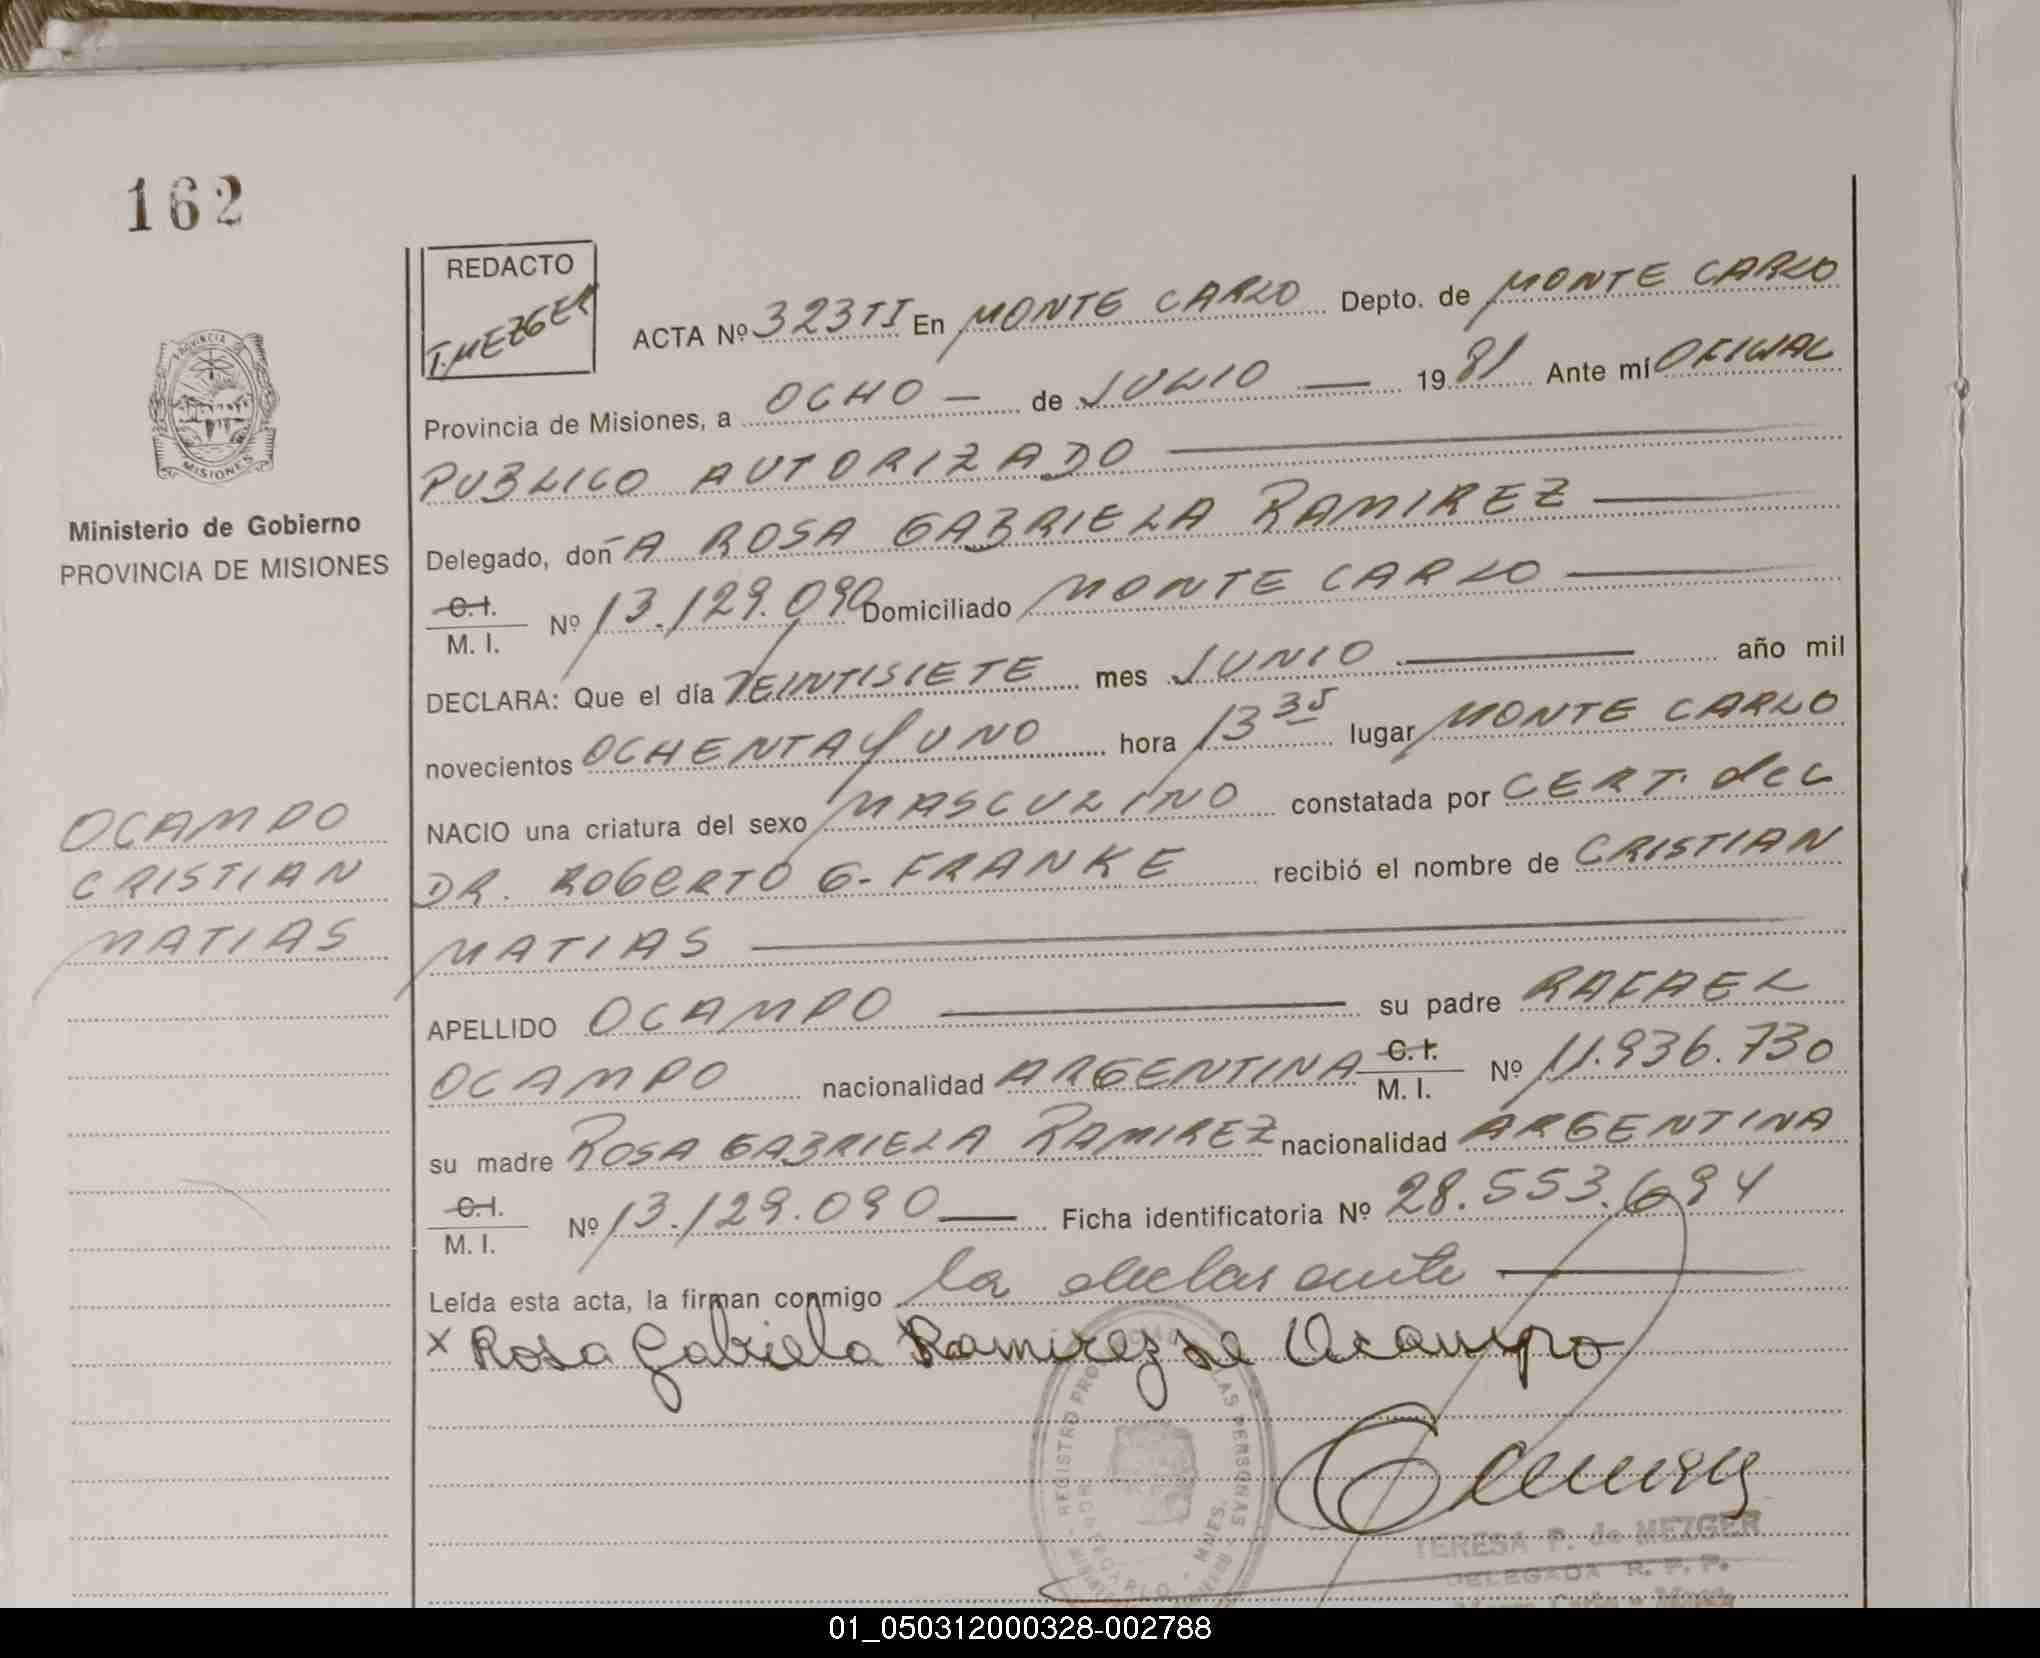 162
REDACTO
T. MEZGER
ACTA Nº 323 TI En MONTE CARLO Depto. de MONTE CARLO
Provincia de Misiones, a OCHO — de JULIO — 1981 Ante mí OFICIAL
PUBLICO AUTORIZADO
Delegado, doñA ROSA GABRIELA RAMIREZ
C.I.
M. I. Nº 13.129.090 Domiciliado MONTE CARLO
DECLARA: Que el día VEINTISIETE mes JUNIO año mil
novecientos OCHENTA Y UNO hora 13 35 lugar MONTE CARLO
NACIO una criatura del sexo MASCULINO constatada por CERT. del
DR. ROBERTO G. FRANKE recibió el nombre de CRISTIAN
MATIAS
APELLIDO OCAMPO su padre RAFAEL
OCAMPO nacionalidad ARGENTINA C.I. M. I. Nº 11.936.730
su madre ROSA GABRIELA RAMIREZ nacionalidad ARGENTINA
C.I.
M. I. Nº 13.129.090 Ficha identificatoria Nº 28.553.694
Leída esta acta, la firman conmigo la declarante
x Rosa Gabriela Ramirez de Ocampo
Ministerio de Gobierno
PROVINCIA DE MISIONES
OCAMPO
CRISTIAN
MATIAS
PROVINCIA DE
MISIONES
REGISTRO PROVINCIAL DE LAS PERSONAS
TERESA P. de MEZGER
DELEGADA R. P. P.
01_050312000328-002788